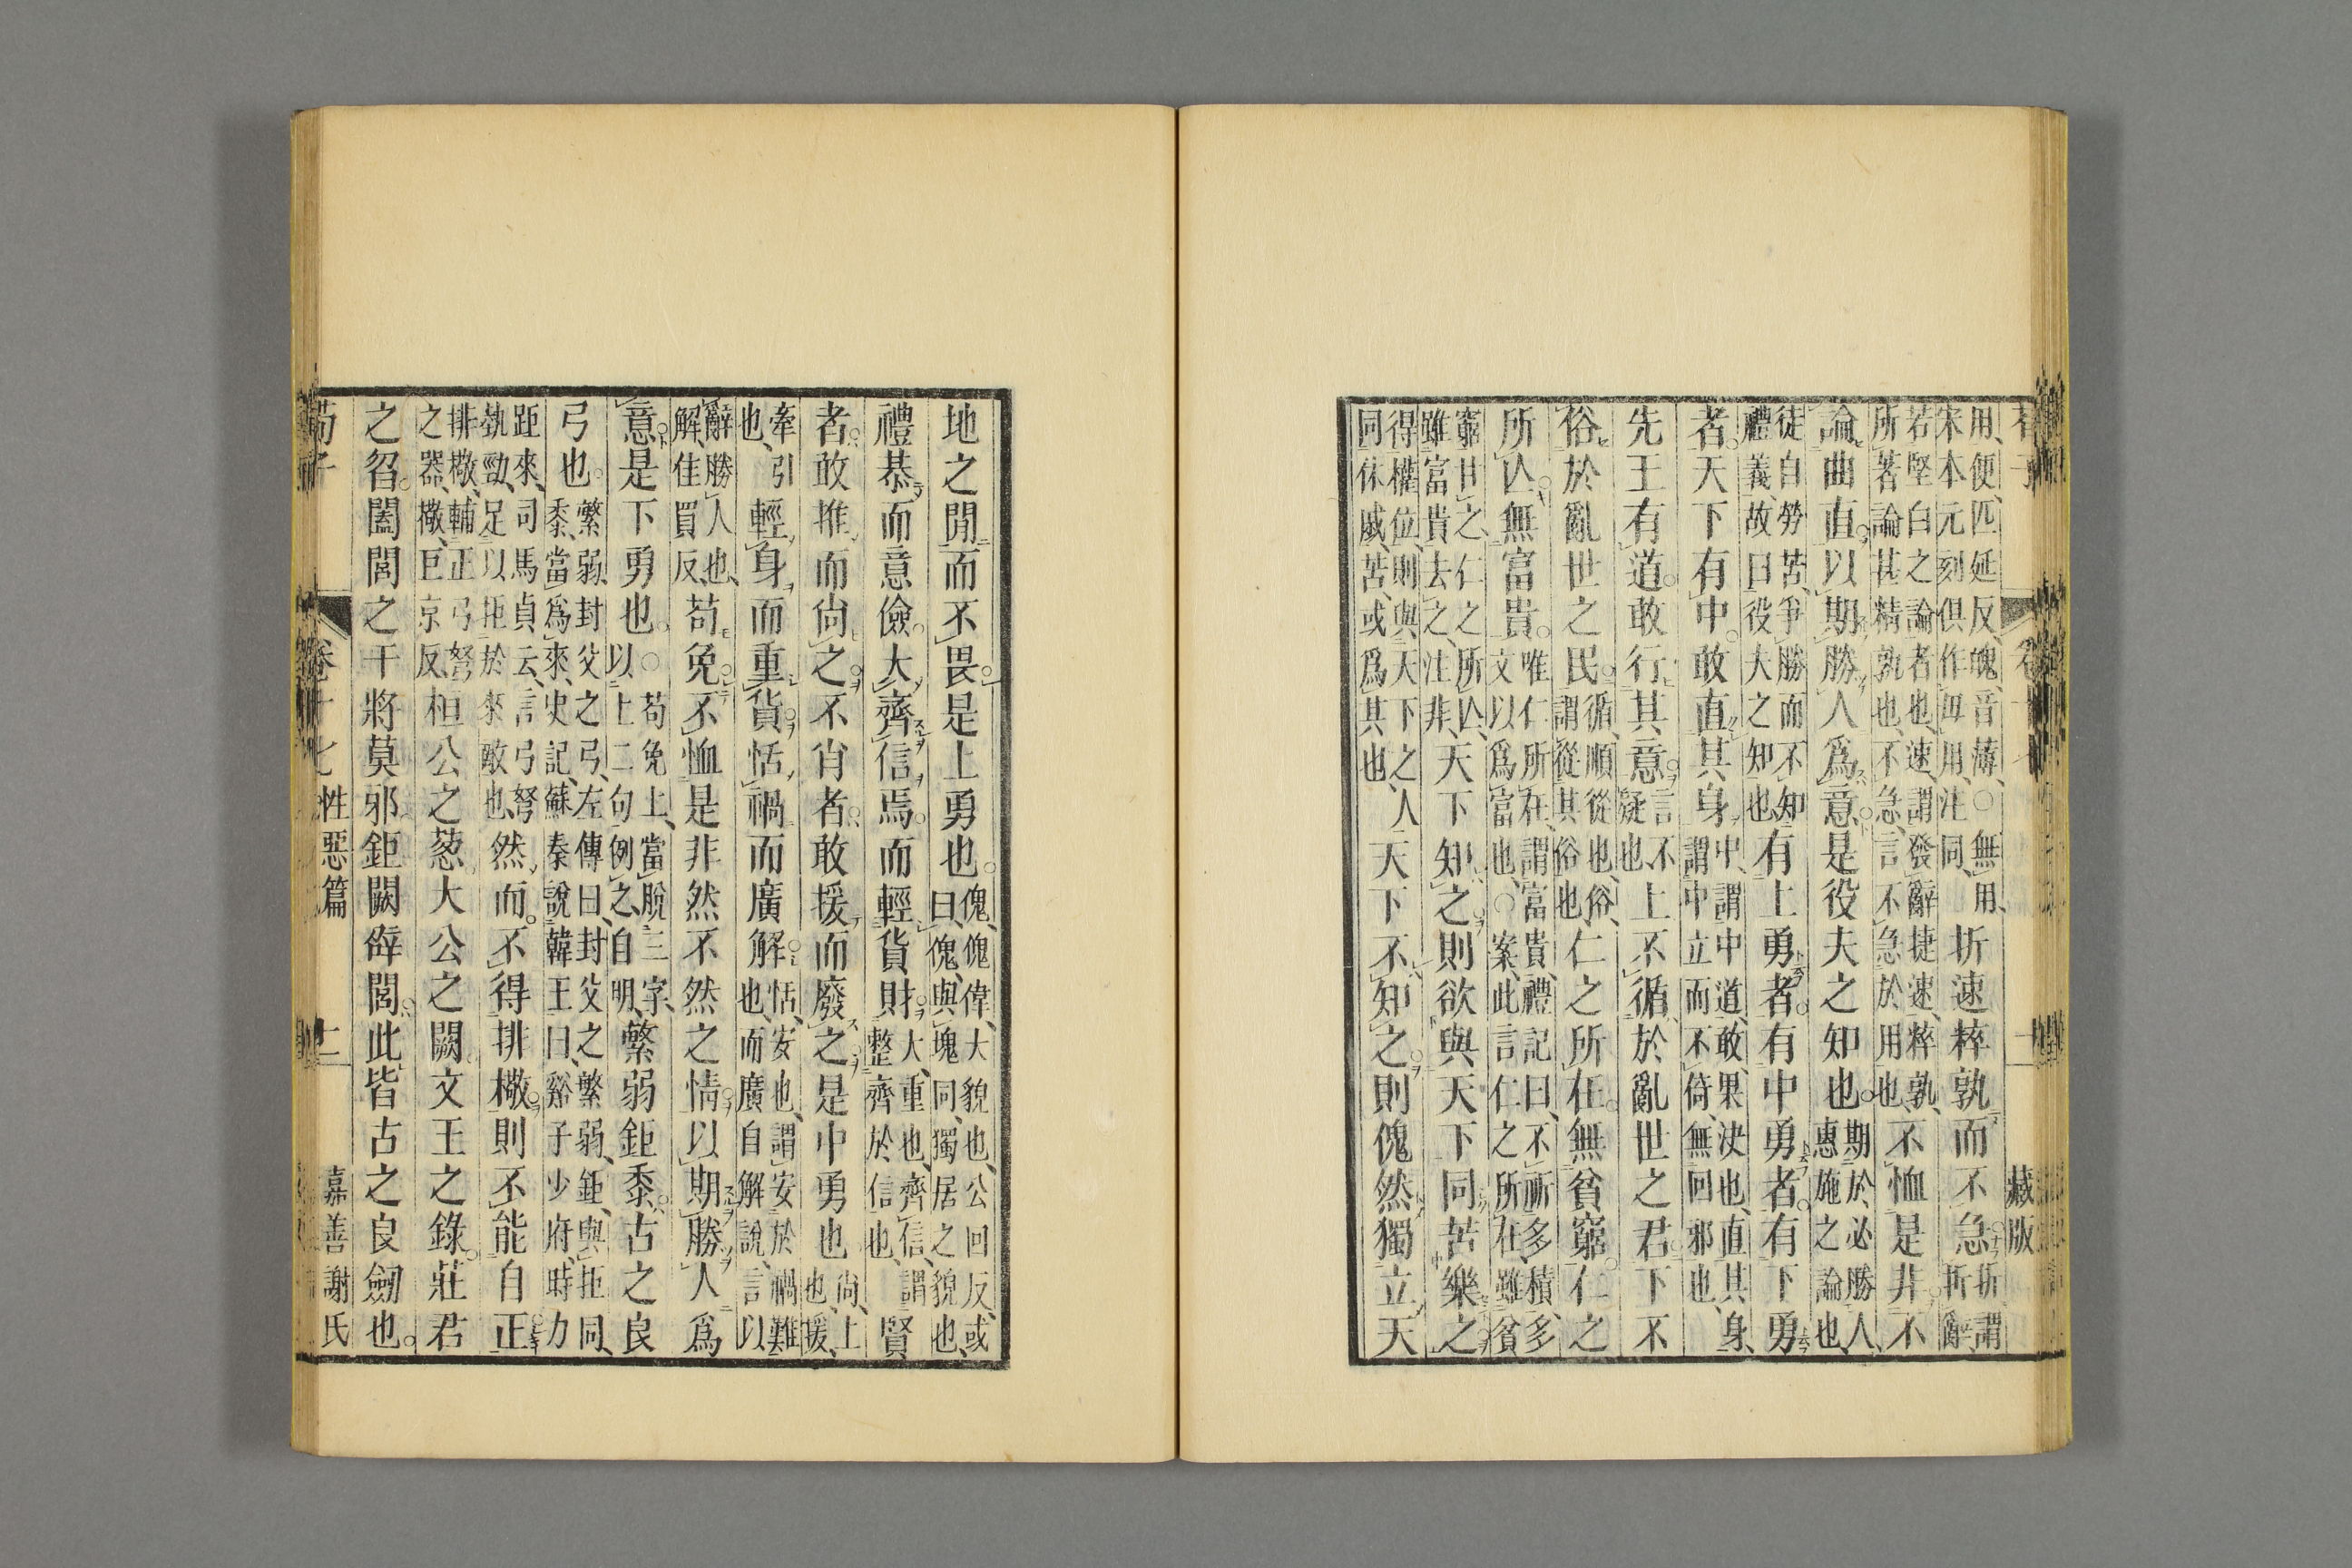 藏版
用、便匹延反、魄、音薄、○無用、
宋本元刻俱作毋用、注同、
折速粹孰而不急
折、謂
折辭、
若堅白之論者也、速、謂發辭捷速、粹孰、
所著論甚精孰也、不急、言不急於用也、
不恤是非不
論曲直以期勝人爲意是役夫之知也
期於必勝人、
惠施之論也、
徒自勞苦、爭勝而不知
禮義、故曰役夫之知也
有上勇者有中勇者有下勇
者天下有中敢直其身
中、謂中道、敢、果決也、直其身、
謂中立而不倚、無回邪也、
先王有道敢行其意
言不
疑也
上不循於亂世之君下不
俗於亂世之民
循、順從也、俗、
謂從其俗也、
仁之所在無貧窮仁之
所亾無富貴
唯仁所在、謂富貴、禮記曰、不祈多積、多
文以爲富也、○案、此言仁之所在、雖貧
窮甘之、仁之所亾、
雖富貴去之、注非、
天下知之則欲與天下同苦樂之
得權位、則與天下之人
同休戚苦、或爲其也、
天下不知之則傀然獨立天
地之閒而不畏是上勇也
傀、傀偉、大貌也、公回反、或
曰、傀與塊同、獨居之貌也、
禮恭而意儉大齊信焉而輕貨財
大、重也、齊信、謂
整齊於信也、
賢
者敢推而尙之不肖者敢援而廢之是中勇也
尙、上
也、援、
牽引
也、
輕身而重貨恬禍而廣解
恬、安也、謂安於禍難
也、而廣自解說、言以
辭勝人也、
解、佳買反、
苟免不恤是非然不然之情以期勝人爲
意是下勇也
○苟免上、當脫三字、
以上二句例之、自明、
繁弱鉅黍古之良
弓也
繁弱、封父之弓、左傳曰、封父之繁弱、鉅、與拒同、
黍、當爲來、史記、蘇秦說韓王曰、谿子少府、時力
距來、司馬貞云、言弓弩
埶勁、足以拒於來敵也、
然而不得排㯳則不能自正
排㯳、輔正弓弩
之器、㯳、巨京反、
桓公之蔥大公之闕文王之錄莊君
之曶闔閭之干將莫邪鉅闕辟閭此皆古之良劒也
荀子 卷十七 性惡篇 十一 嘉善謝氏